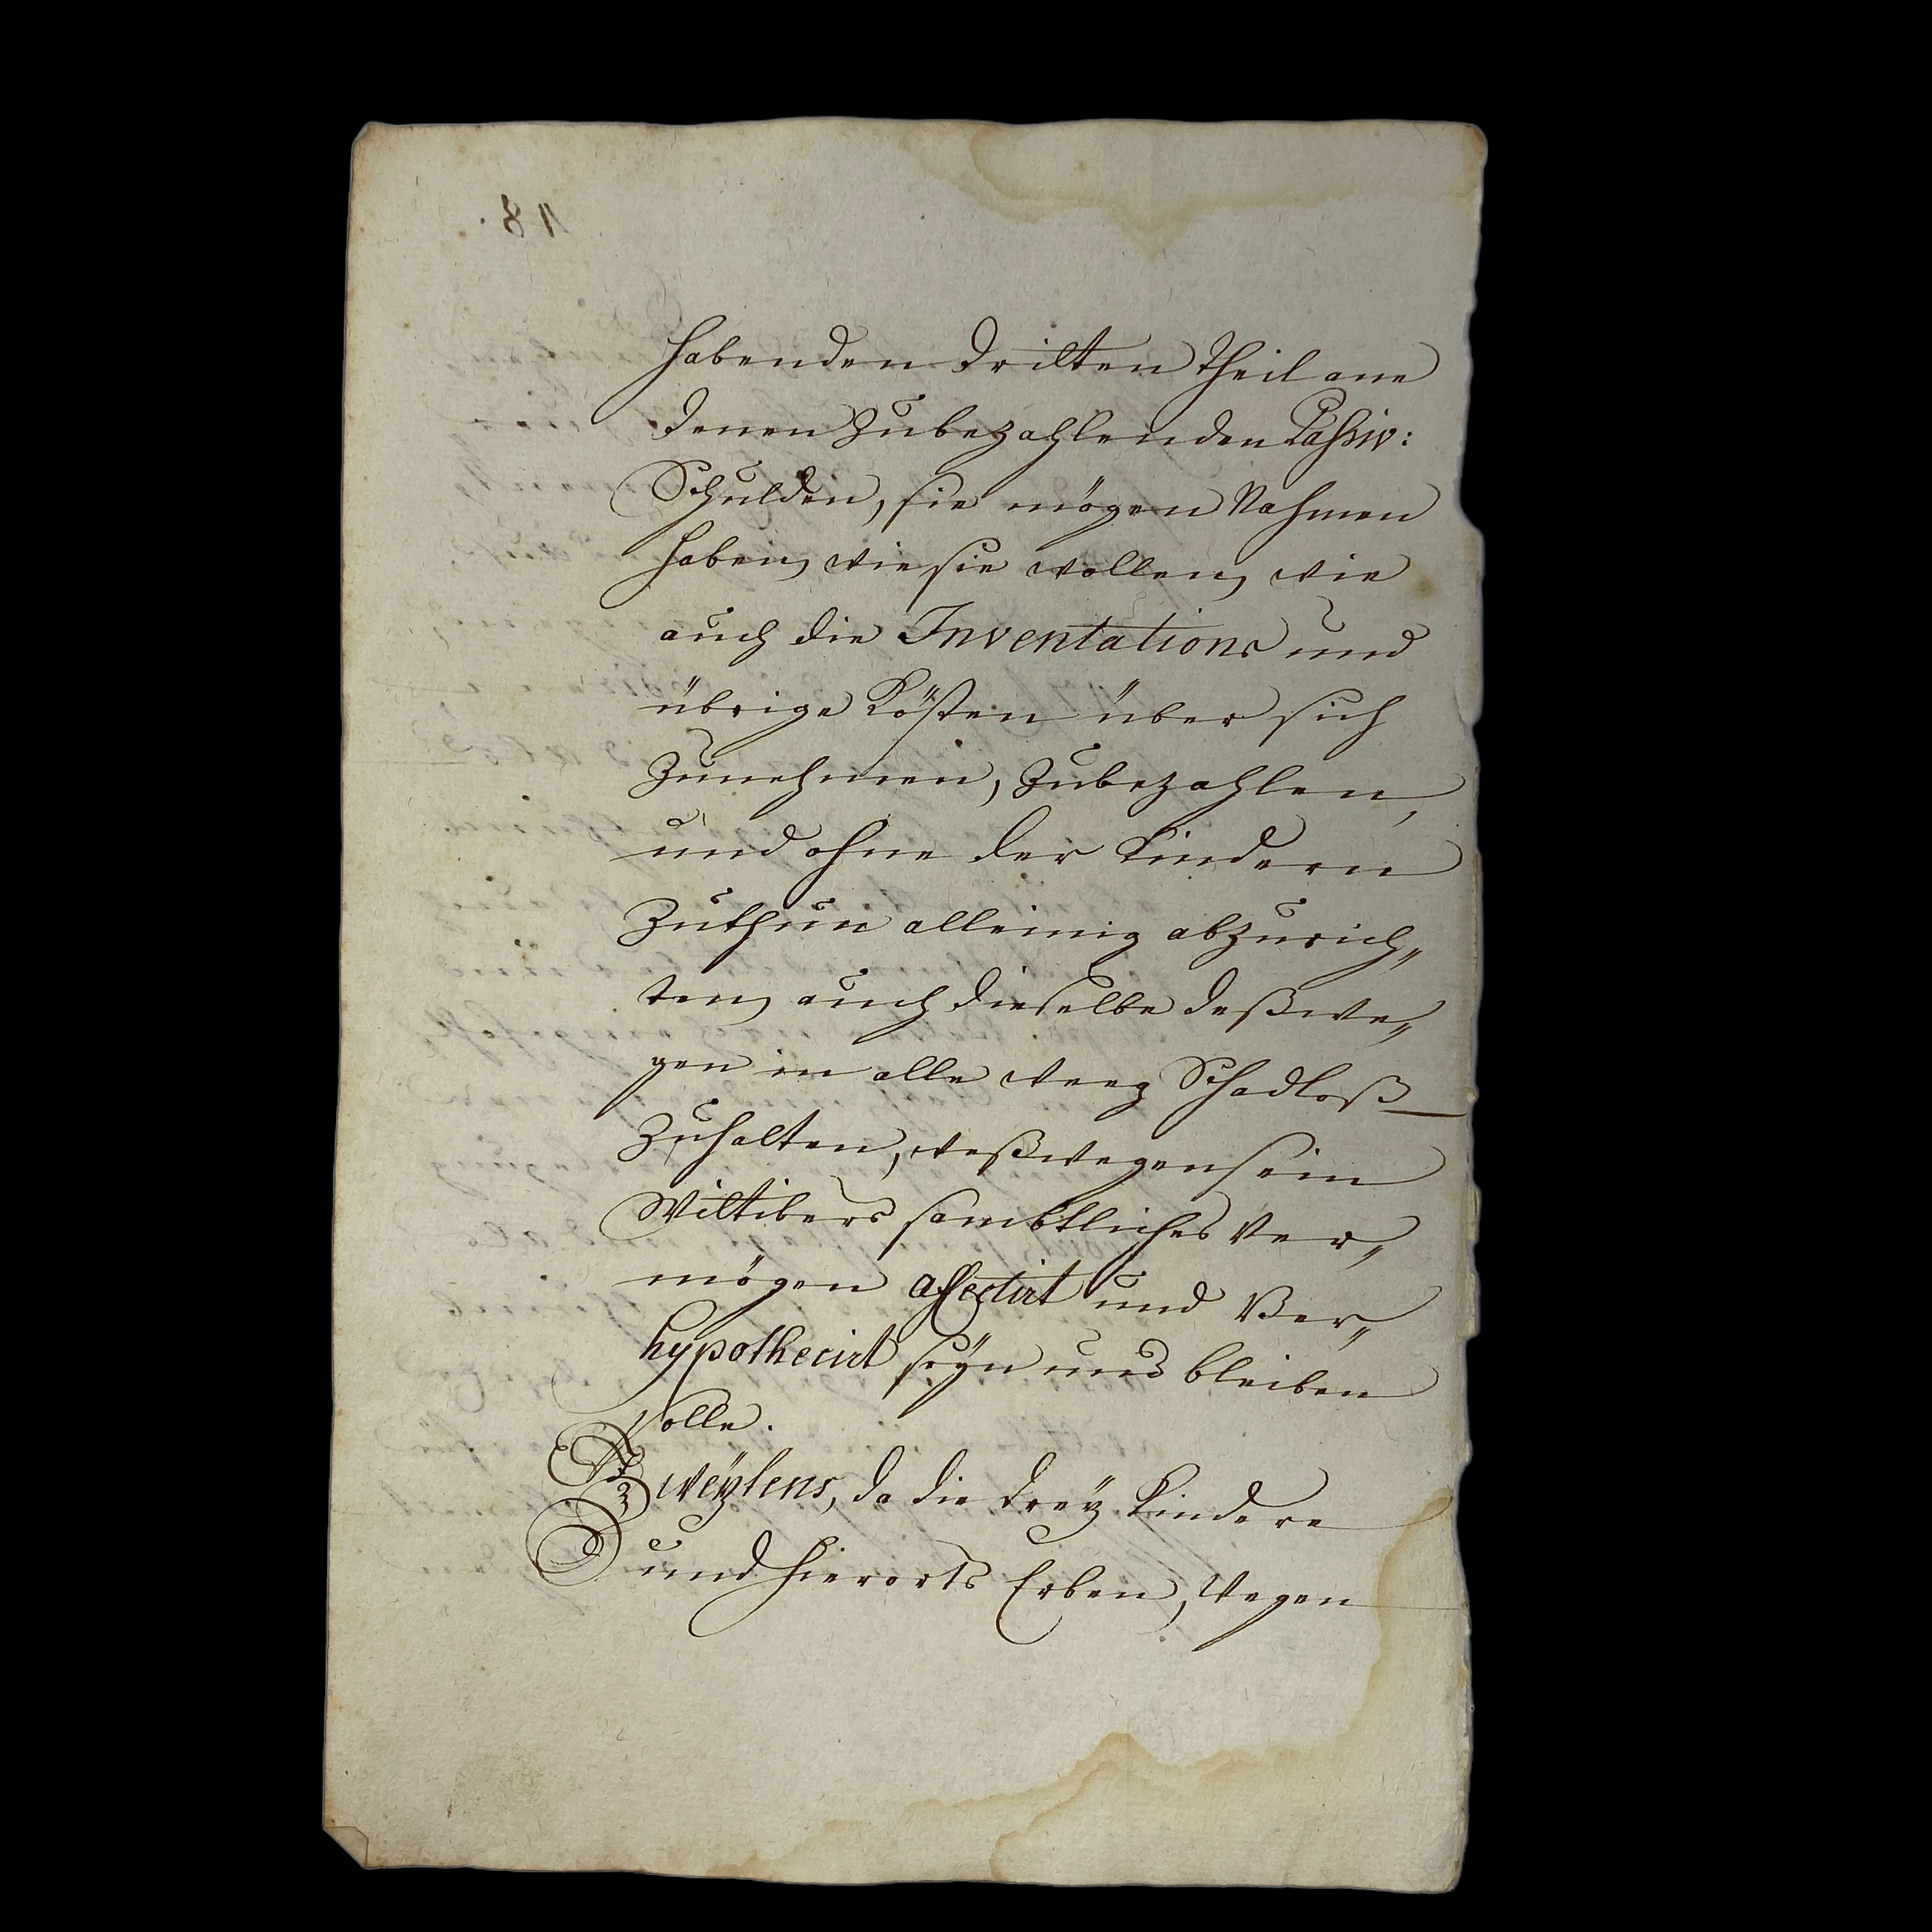 habenden dritten theil ane
denen zubezahlenden Passiv:
Schulden, sie mögen Nahmen
haben, wie sie wollen, wie
auch die Inventations und
übrige Kösten über sich
Zunehmen, Zubezahlen,
und ohne der Kindern
Zuthun alleinig abzurich„
ten, auch dieselbe deßwe„
gen in alle weeg Schadloß
Zuhalten, weßwegen sein
Wittibers sambtliches Ver„
mögen affectirt und Ver„
hypothecirt seÿn und bleiben
solle.
Zweÿtens, da die dreÿ Kindere
und hierorts Erben, wegen